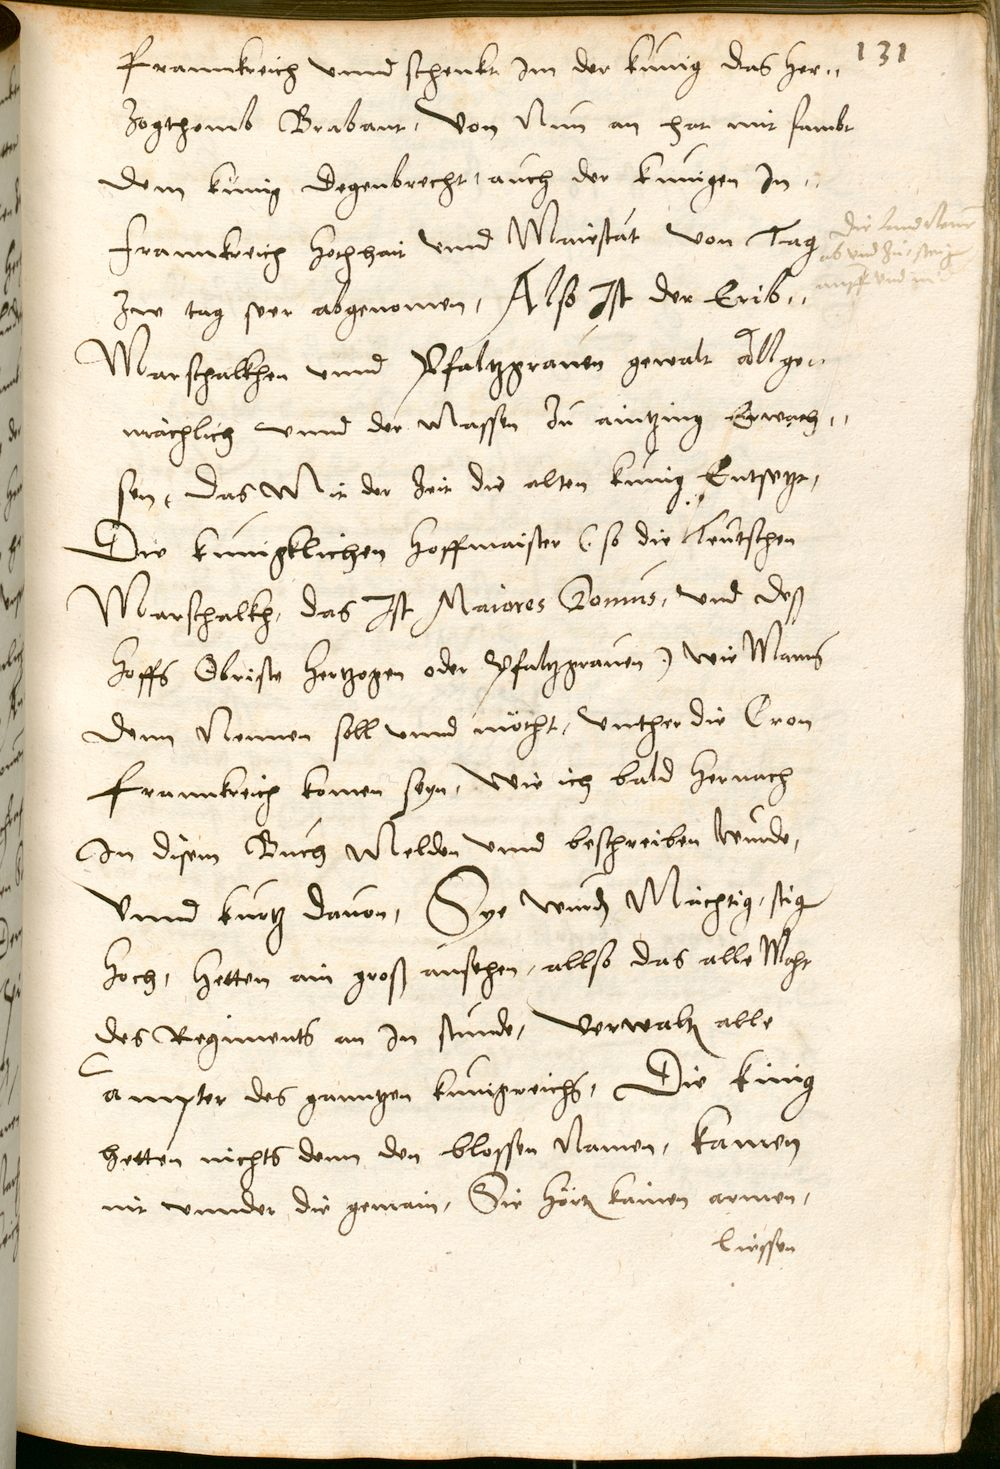 131
Frannkreich vnnd schenkt Im der künig das Her„
Zogthomb Brabant, Von Nun an hat mit sambt
dem künig Degenbrecht, auch der künigen In„
Frannkreich Hochhait vnnd Maiestat von Tag
Zw tag seer abgenomen, Also Ist der Erib„
Marschalkhen vnnd Pfaltzgrauen gewalt Allge„
mächlich vnnd der Massen Zu aintzing Erwach„
sen, das Mit der Zeit die alten künig Entsetzt,
Die künigklichen Hoffmaister (: so die Teutschen
Marschalkh, das Ist Maiores Domus, vnd deß
Hoffs Obriste Hertzogen oder Pfaltzgrauen :) wie Mans
denn Nennen soll vnnd möcht, vnther die Cron
Frannkreich komen seyn, wie ich bald hernach
In disem Buch Melden vnnd beschreiben wurde,
Vnnd kurtz dauon, Sye wurdn Mächtig, stig
hoch, Hetten ain groß ansehen, allso das alle Mahr
des Regiments an In stunde, Verwaltn alle
ampter des ganntzen künigreichs, Die künig
hetten nichts denn den blossen Namen, kamen
nit vnnder die gemain, Sie hörtn kainen armen,
liessen
die land
ab vnd Zu
auff vnd